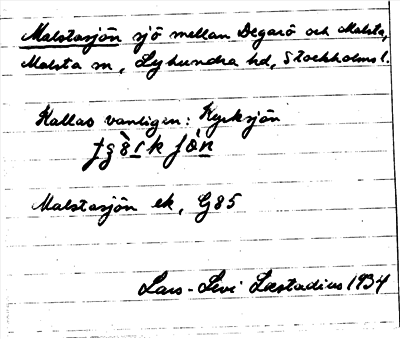 Malstasjön sjö mellan Degarö och Malsta,
Malsta sn, Lyhundra hd, Stockholms l.
Kallas vanligen: Kyrksjön
Malstasjön ek, G85
Lars-Levi Læstadius 1934